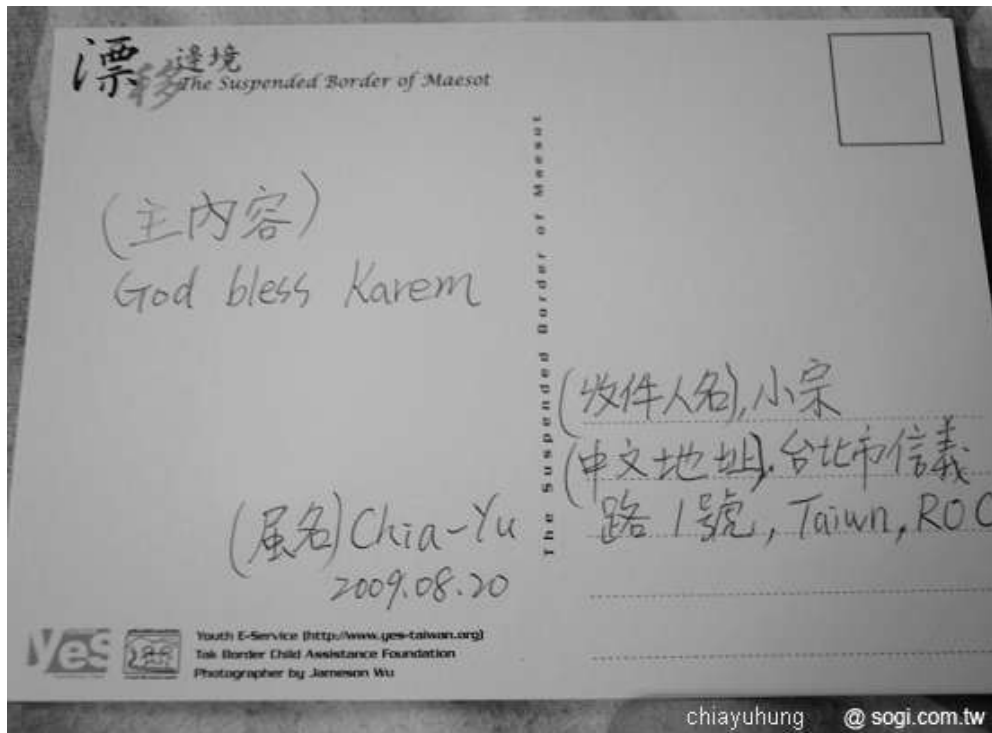 漂移邊境
The Suspended Border of Maesot
(主內容)
God bless Karem
(屆名)Chia-Yu
2009.08.20
The Suspended Border of Maesot
(收件人名),小宗
(中文地址).台北市信義
路1號, Taiwn, ROC
Yes
Youth E-Service (http://www.yes-taiwan.org)
Tak Border Child Assistance Foundation
Photographer by Jameson Wu
chiayuhung @ sogi.com.tw